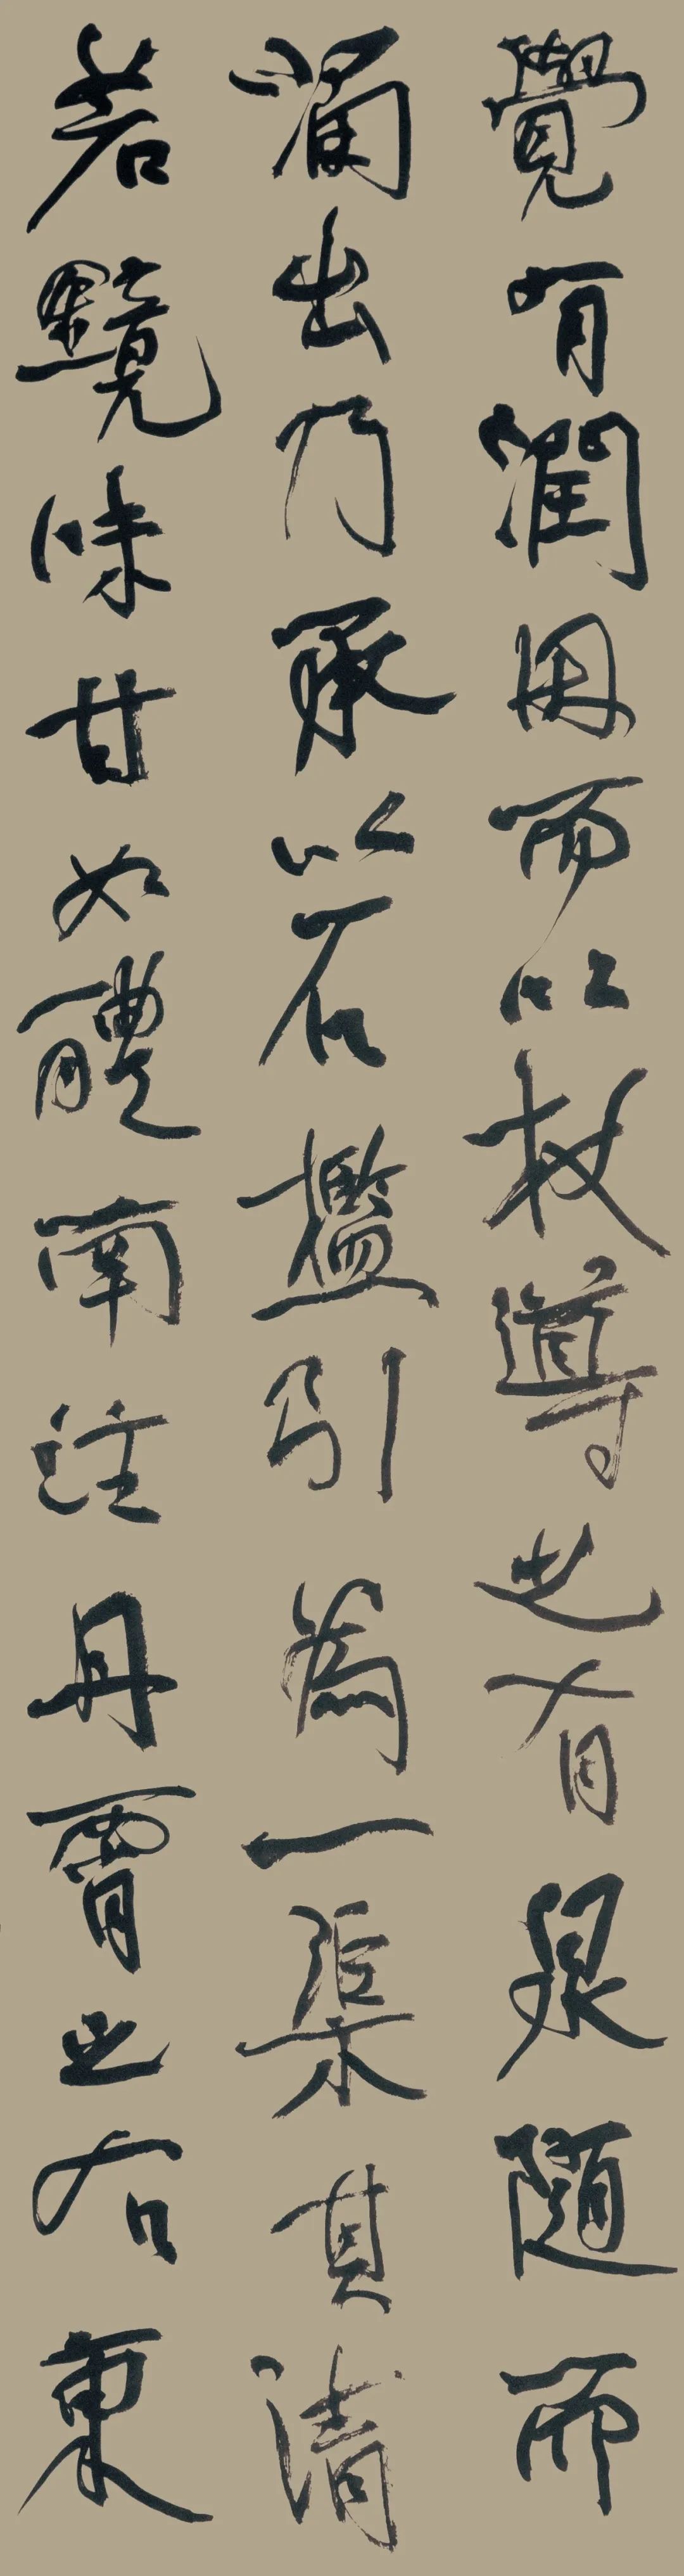 覺有潤因而以杖導之有泉隨而
涌出乃承以石檻引為一渠其清
若鏡味甘如醴南注丹霄之右東